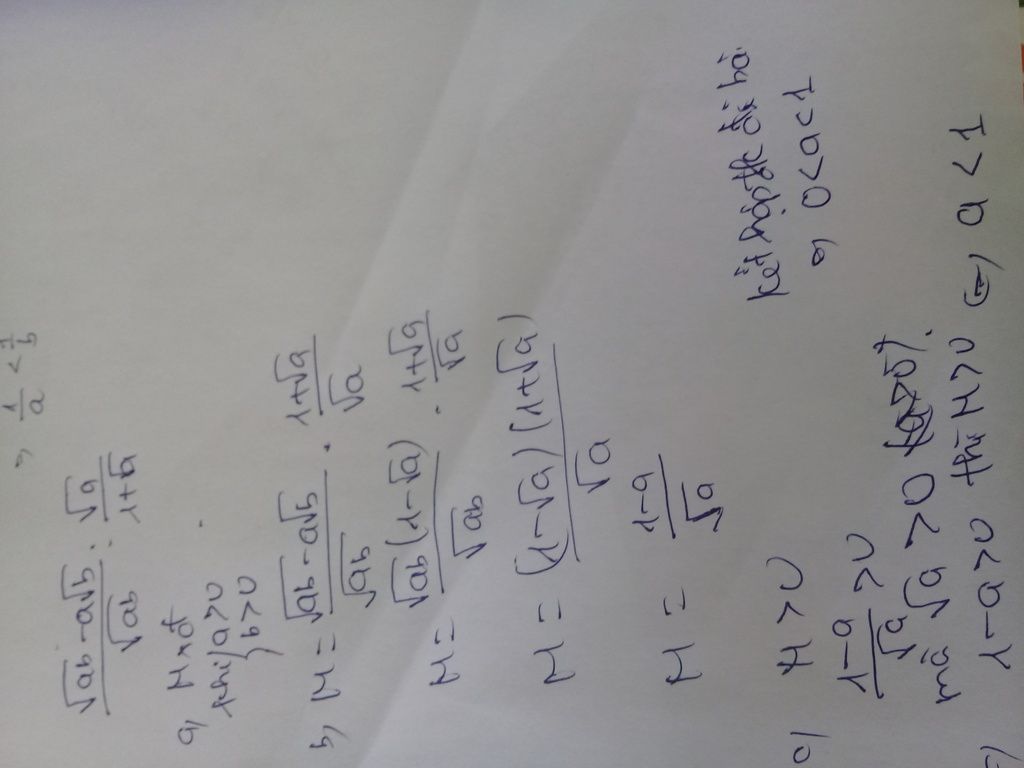 ⇒ 1/a < 1/b
(√ab - a√b)/√ab : √a/(1+√a)
a) M xđ
khi { a>0
b>0
b) M = (√ab - a√b)/√ab . (1+√a)/√a
M = √ab(1-√a)/√ab . (1+√a)/√a
M = (1-√a)(1+√a)/√a
M = (1-a)/√a
c) M > 0
(1-a)/√a > 0
mà √a > 0
1-a>0 thì M>0 (=) a < 1
kết hợp đk đề bài
⇒ 0<a<1